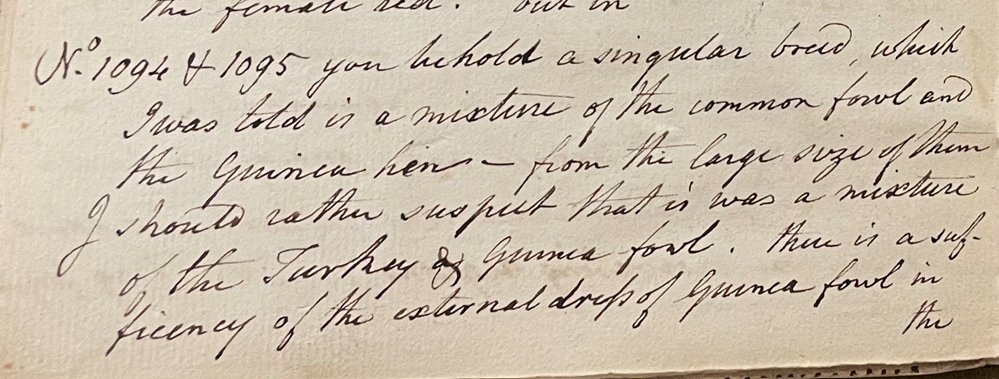 the female red. but in
No. 1094 & 1095 you behold a singular breed, which
I was told is a mixture of the common fowl and
the Guinea hen - from the large size of them
I should rather suspect that is was a mixture
of the Turkey & Guinea fowl. there is a suf-
ficency of the external dress of Guinea fowl in
the